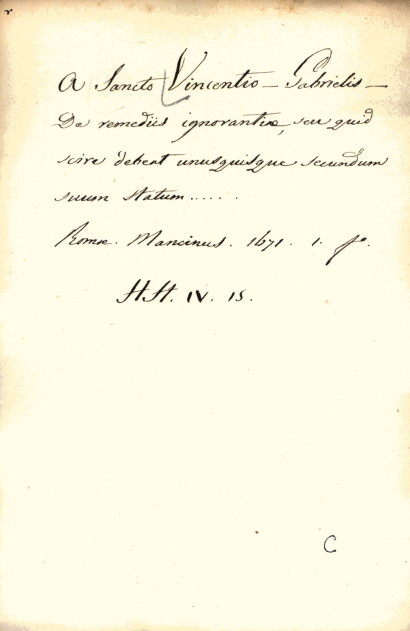 A Sancto Vincentio – Gabrielis –
De remediis ignorantiæ, seu quid
scire debeat unusquisque secundum
suum statum......
Romæ. Mancinus. 1671. 1. fo.
HH. IV. 15.
C